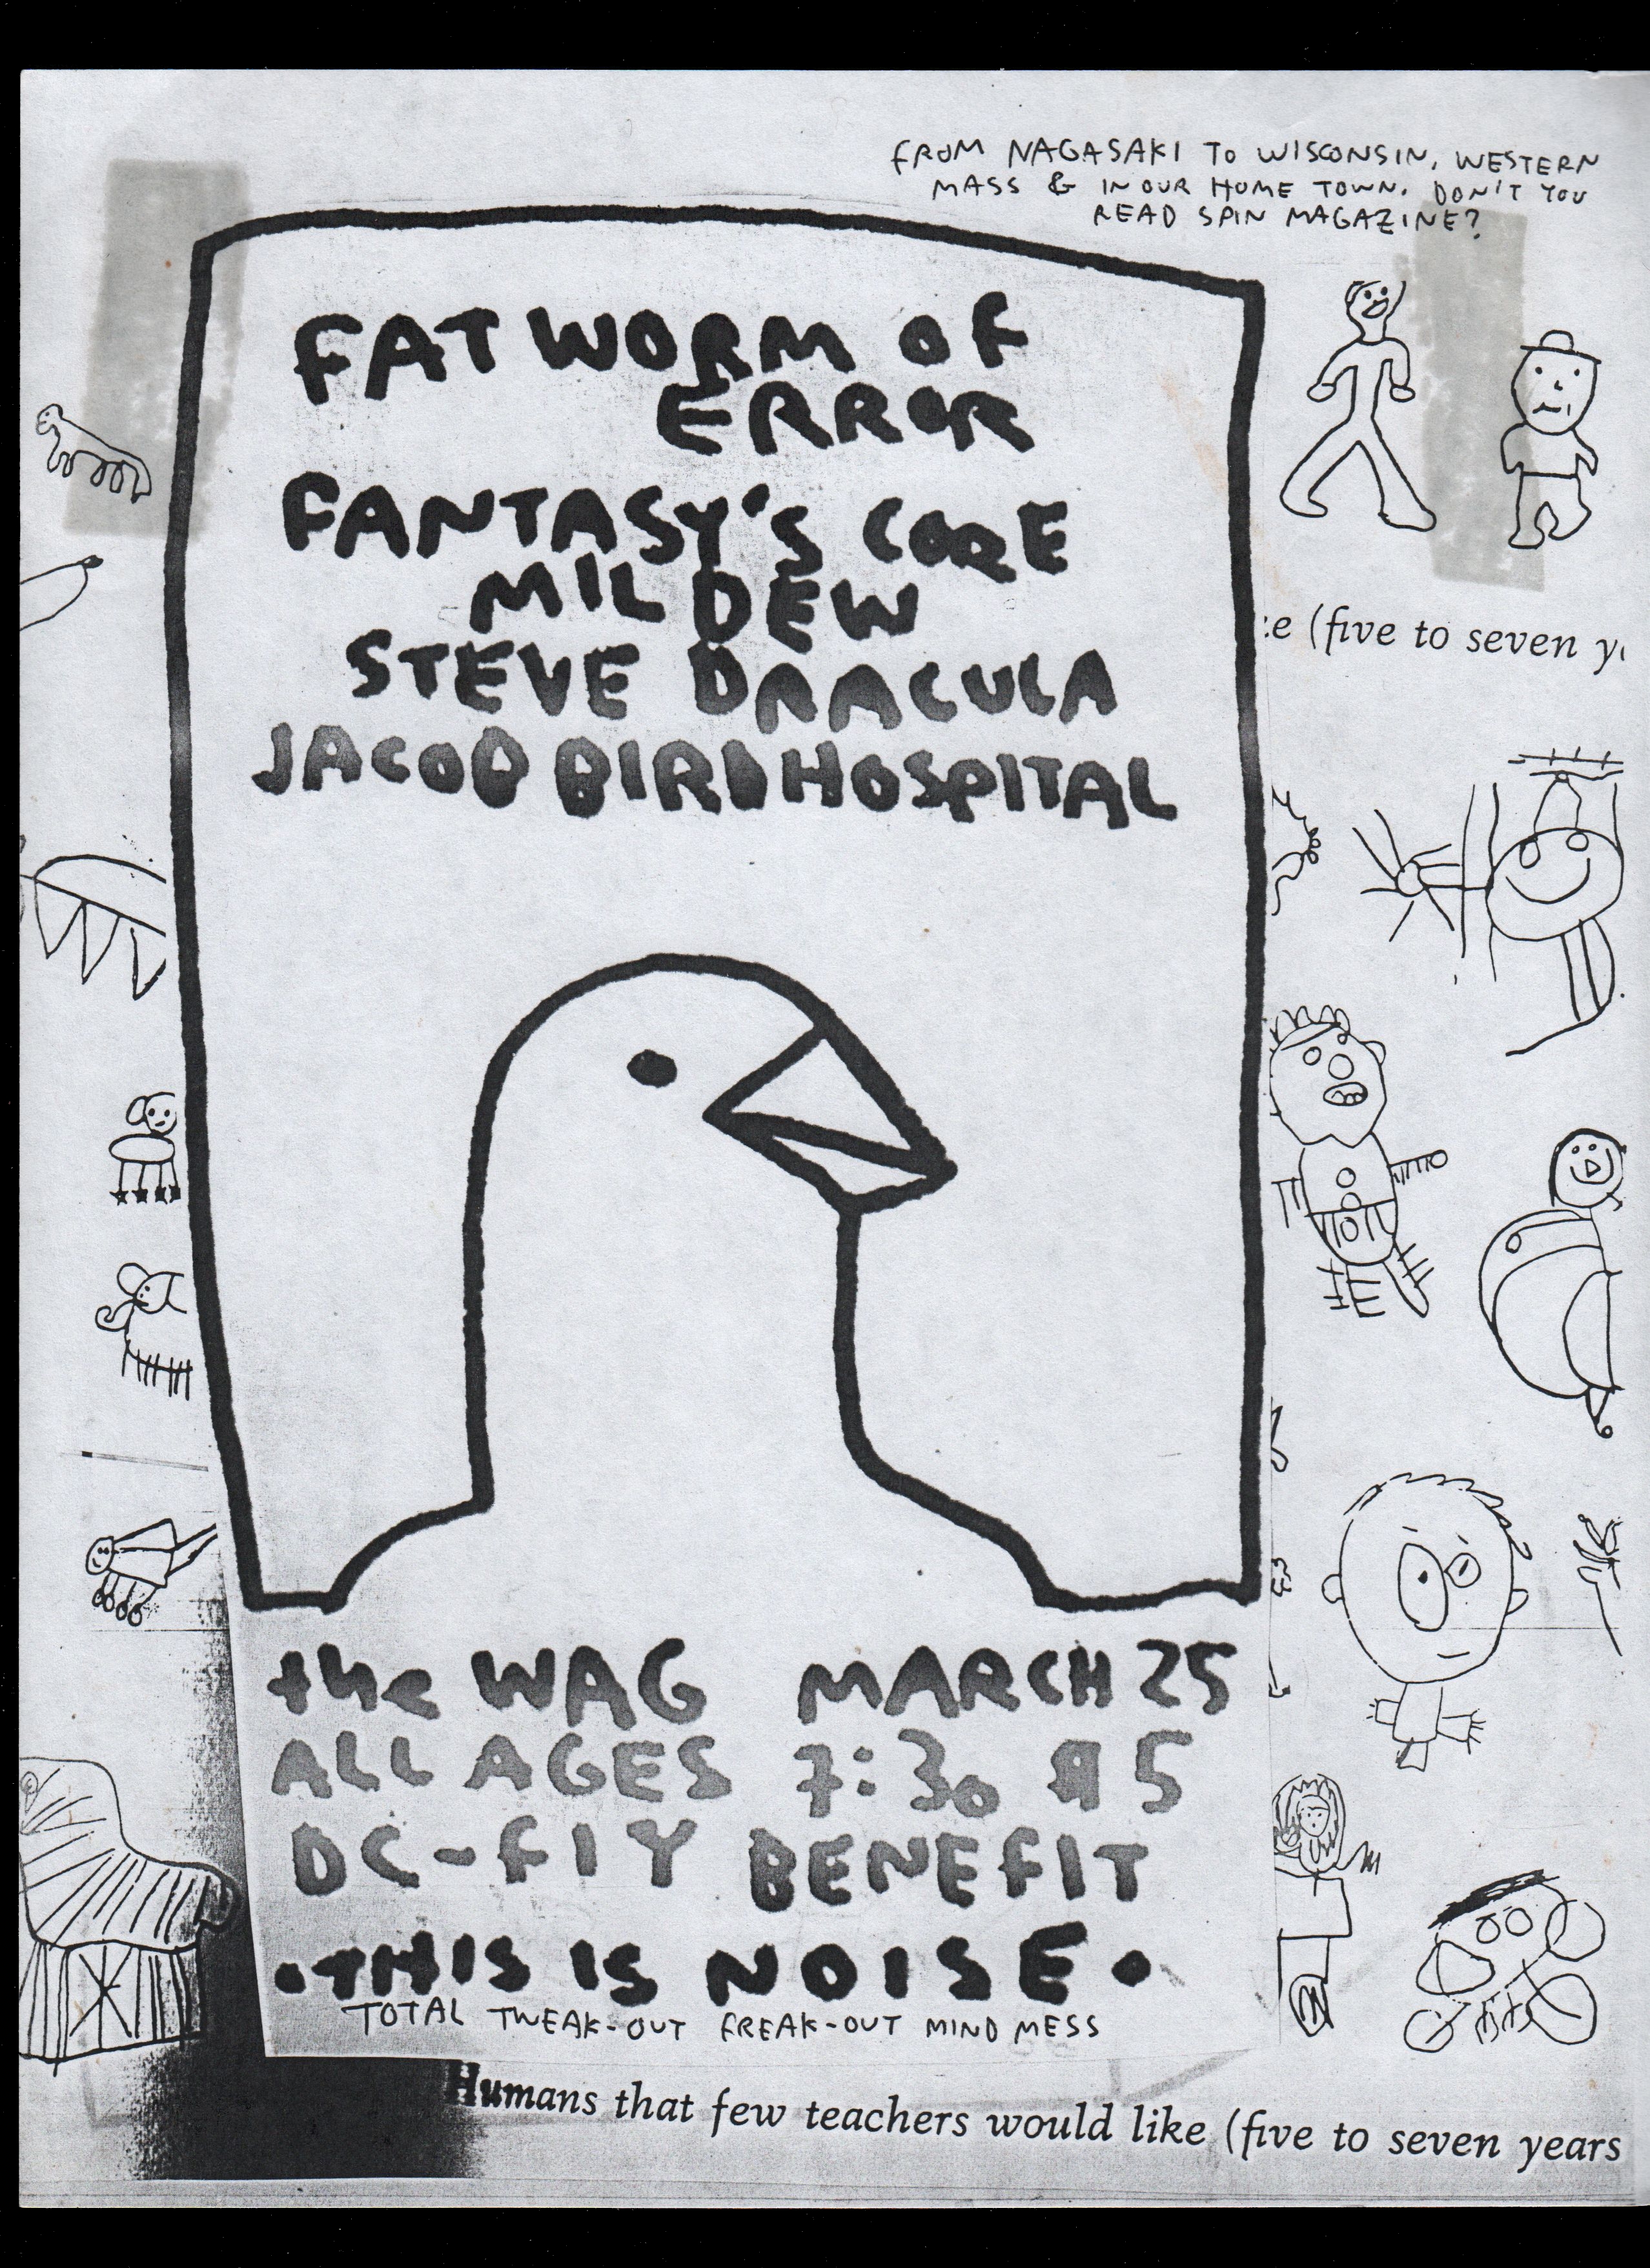 FROM NAGASAKI TO WISCONSIN, WESTERN
MASS & IN OUR HOME TOWN. DON'T YOU
READ SPIN MAGAZINE?
FAT WORM OF
ERROR
FANTASY'S CORE
MIL DEW
STEVE DRACULA
JACOB BIRDHOSPITAL
(five to seven
the WAG MARCH 25
ALL AGES 7:30 $5
DC-FIY BENEFIT
•THIS IS NOISE•
TOTAL TWEAK-OUT FREAK-OUT MIND MESS
Humans that few teachers would like (five to seven years